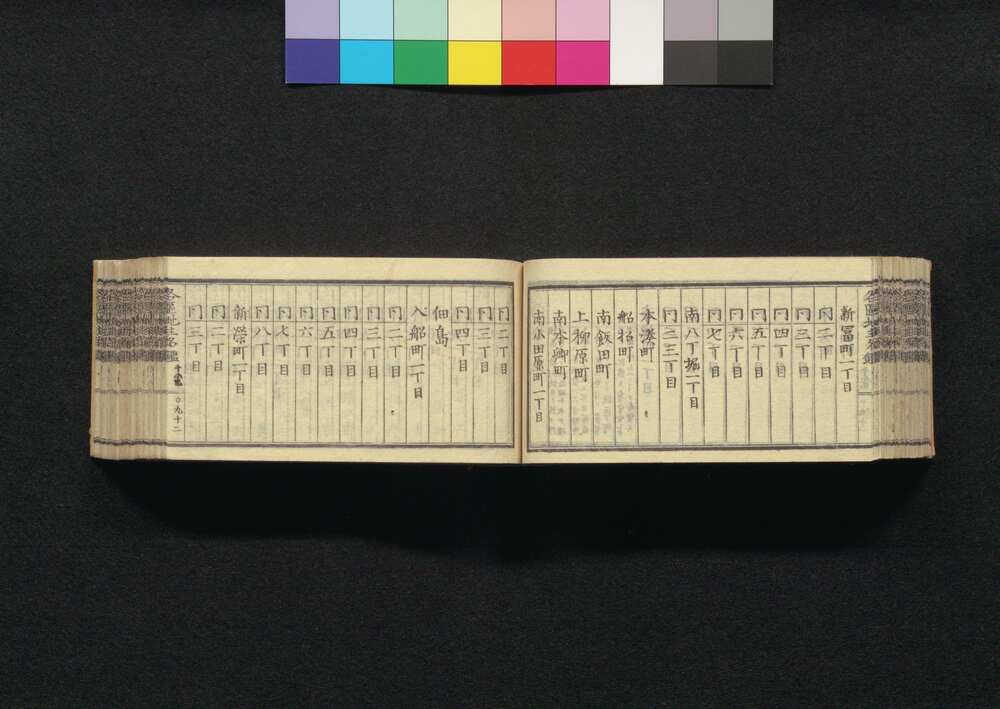 新富町一丁目
同二丁目
同三丁目
同四丁目
同五丁目
同六丁目
同七丁目
南八丁堀一丁目
同二三丁目
本湊町
船松町
南飯田町
上柳原町
南本郷町
南小田原町一丁目
同二丁目
同三丁目
同四丁目
佃島
入船町一丁目
同二丁目
同三丁目
同四丁目
同五丁目
同六丁目
同七丁目
同八丁目
新榮町一丁目
同二丁目
同三丁目
〇九十二